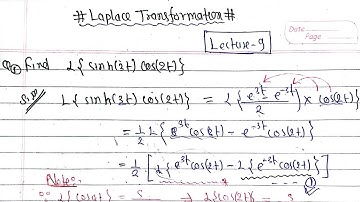 # Laplace Transformation #
Lecture-9
Date
Page
Q① Find L{sinh(3t) cos(2t)}
Solⁿ L{sinh(3t) cos(2t)} = L{(e^3t - e^-3t)/2 × cos(2t)}
= 1/2 L{e^3t cos(2t) - e^-3t cos(2t)}
= 1/2 [L{e^3t cos(2t) - L{e^-3t cos(2t)}] ①
Note:-
∵ L{cosat} = s ⇒ L{cos(2t)} = s